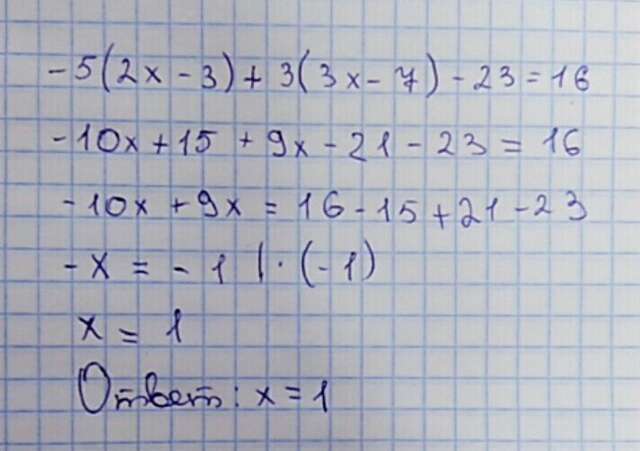 -5(2x-3)+3(3x-7)-23=16
-10x+15+9x-21-23=16
-10x+9x=16-15+21-23
-x=-1 |·(-1)
x=1
Ответ: x=1